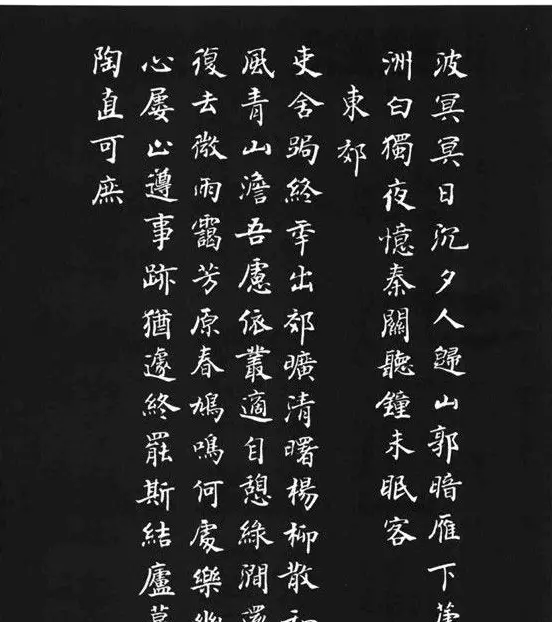 波冥冥日沉夕人歸山郭暗雁下蘆
洲白獨夜憶秦關聽鐘未眠客
東郊
吏舍跼終年出郊曠清曙楊柳散和
風青山澹吾慮依叢適自憩綠澗還
復去微雨靄芳原春鳩鳴何處樂幽
心屢止遵事跡猶遽終罷斯結廬慕
陶直可庶